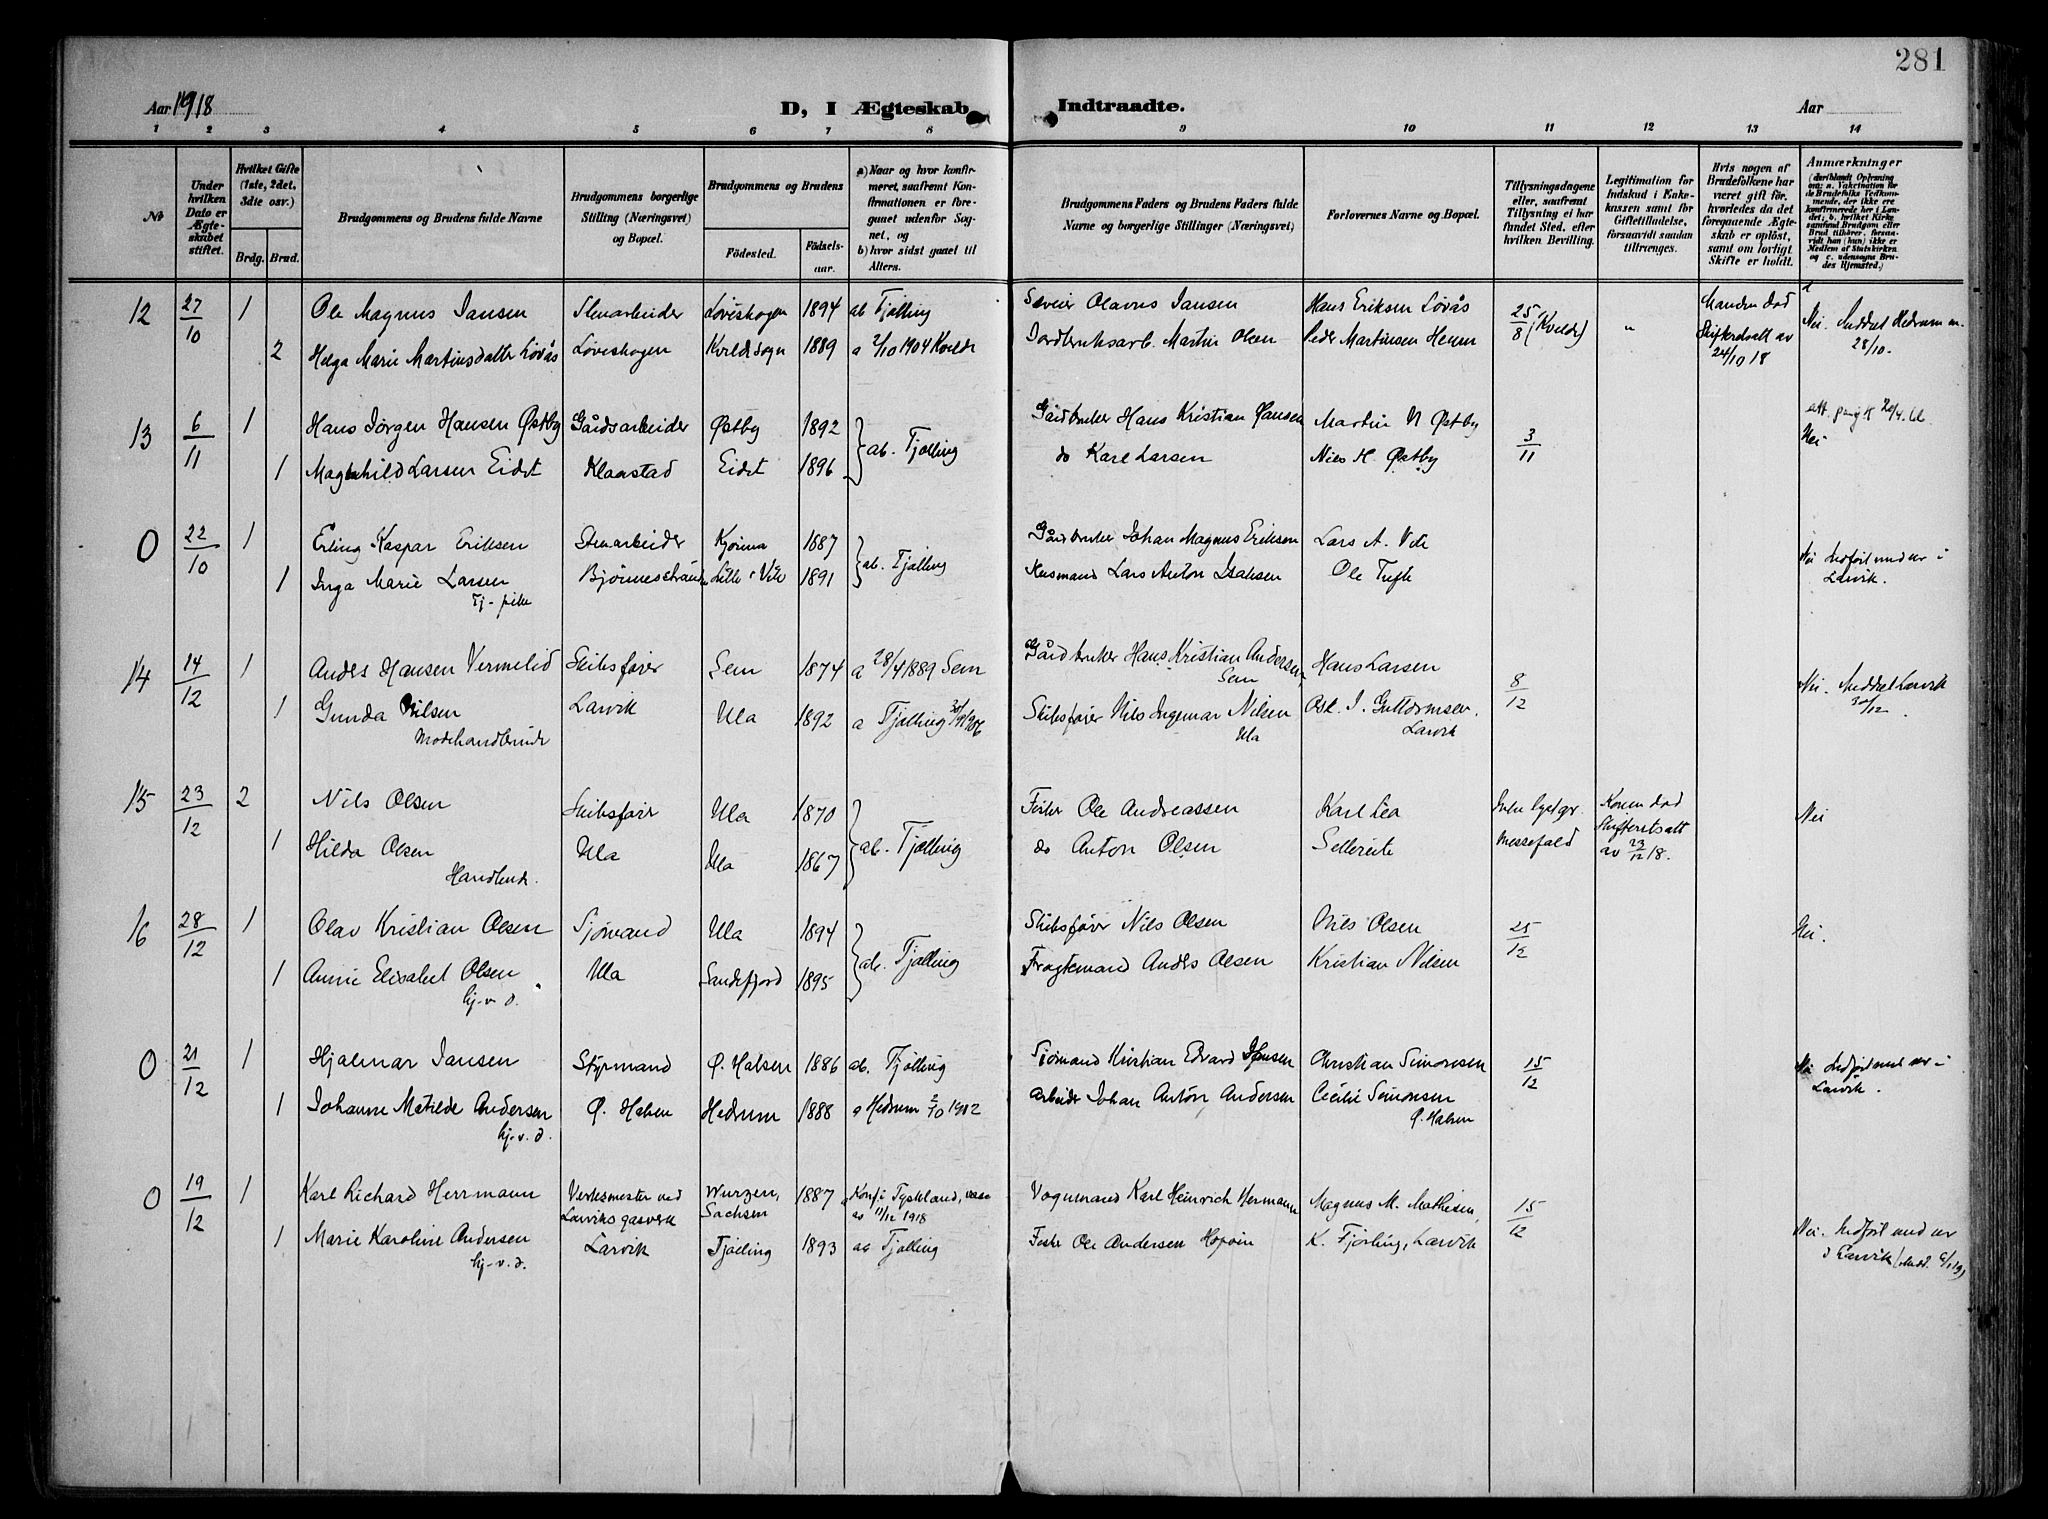 281
Aar 1918
D, I Ægteskab Indtraadte.
Aar
1 2 3 4 5 6 7 8 9 10 11 12 13 14
No
Under hvilken Dato er Ægteskabet stiftet.
Hvilket Gifte (1ste, 2det, 3dte osv.)
Brdg. Brud.
Brudgommens og Brudens fulde Navne
Brudgommens borgerlige Stilling (Næringsvei) og Bopæl.
Brudgommens og Brudens
Fødested. Fødselsaar.
a) Naar og hvor konfirmeret, saafremt Konfirmationen er foregaaet udenfor Sognet, og
b) hvor sidst gaaet til Alters.
Brudgommens Faders og Brudens Faders fulde Navne og borgerlige Stillinger (Næringsvei)
Forlovernes Navne og Bopæl.
Tillysningsdagene eller, saafremt Tillysning ei har fundet Sted, efter hvilken Bevilling.
Legitimation for Indskud i Enkekassen samt for Giftetilladelse, forsaavidt saadan tiltrænges.
Hvis nogen af Brudefolkene har været gift før, hvorledes da det foregaaende Ægteskab er opløst, samt om lovligt Skifte er holdt.
Anmærkninger (deriblandt Oplysning om: a. Vaksination for de Brudefolks Vedkommende, der ikke ere konfirmerede her i Landet; b. hvilket Kirkesamfund Brudgom eller Brud tilhører, forsaavidt han (hun) ikke er Medlem af Statskirken og c. udensogns Brudes Hjemsted.)
12 27/10 1 Ole Magnus Jansen Stenarbeider Løveskogen 1894 ab Tjølling Olavus Jansen Hans Eriksen Løvås 25/8 (Kvelde) " Manden død Nei. Meddelt Hedrum
2 Helga Marie Martinsdatter Løvås Løveskogen Kvelde sogn 1889 a 2/10 1904 Kvelde Jordbruksarb. Martin Olsen Peder Martinsen Skifteretsatt av 24/10 18 28/10.
13 6/11 1 Hans Jørgen Hansen Østby Gårdsarbeider Østby 1892 ab. Tjølling Gårdbruker Hans Kristian Hansen Martin N Østby 3/11 Nei
1 Magnhild Larsen Eidet Klaastad Eidet 1896 do Karl Larsen Nils H. Østby
0 22/10 1 Erling Kaspar Eriksen Stenarbeider 1887 ab. Tjølling Gårdbruker Johan Magnus Eriksen Lars A. Vik Nei Indført med nr i
1 Inga Marie Larsen Bjønnestranda Lille Vik 1891 Husmand Lars Anton Isaksen Ole Tufte Larvik.
Tj-pike
14 14/12 1 Anders Hansen Vermelid Skibsfører Sem 1874 a 28/4 1889 Sem Gårdbruker Hans Kristian Andersen, Sem Hans Larsen 8/12 Nei. Meddelt Larvik
1 Gunda Nilsen Larvik Ula 1892 a Tjølling 30/9 1906 Skibsfører Nils Ingemar Nilsen Ula Osk. I. Guttormsen. Larvik 30/12.
Modehandlerinde
15 23/12 2 Nils Olsen Skibsfører Ula 1870 ab. Tjølling Fisker Ole Andreassen Karl Lea Konen død Nei
1 Hilda Olsen Ula Ula 1867 do Anton Olsen messefald Skifteretsatt av 23/12 18.
Handlende.
16 28/12 1 Olav Kristian Olsen Sjømand Ula 1894 ab. Tjølling Skibsfører Nils Olsen Nils Olsen 25/12 Nei.
1 Annie Elisabet Olsen Ula Sandefjord 1895 Fragtemand Anders Olsen Kristian Nilsen
hj-v d.
0 21/12 1 Hjalmar Jansen Styrmand Ø. Halsen 1886 ab. Tjølling Sjømand Kristian Edvard Jansen Christian Simonsen 15/12 Nei Indført med nr i
1 Johanne Matilde Andersen Ø. Halsen Hedrum 1888 a Hedrum 2/10 1902 Arbeider Johan Anton Andersen Cecilie Simonsen Larvik.
hj-v. d. Ø. Halsen
0 19/12 1 Karl Richard Herrmann Verksmester ved Wurzen, 1887 Konf. i Tyskland, Vognmand Karl Heinrich Hermann Magnus M. Mathisen, 15/12
Larviks gasverk Sachsen av 11/12 1918
1 Marie Karoline Andersen Larvik Tjølling 1893 ab Tjølling Fisker Ole Andersen K. Fjørling, Larvik Nei. Indført med nr
hj-v. d. i Larvik (Medd. 6/1 19)